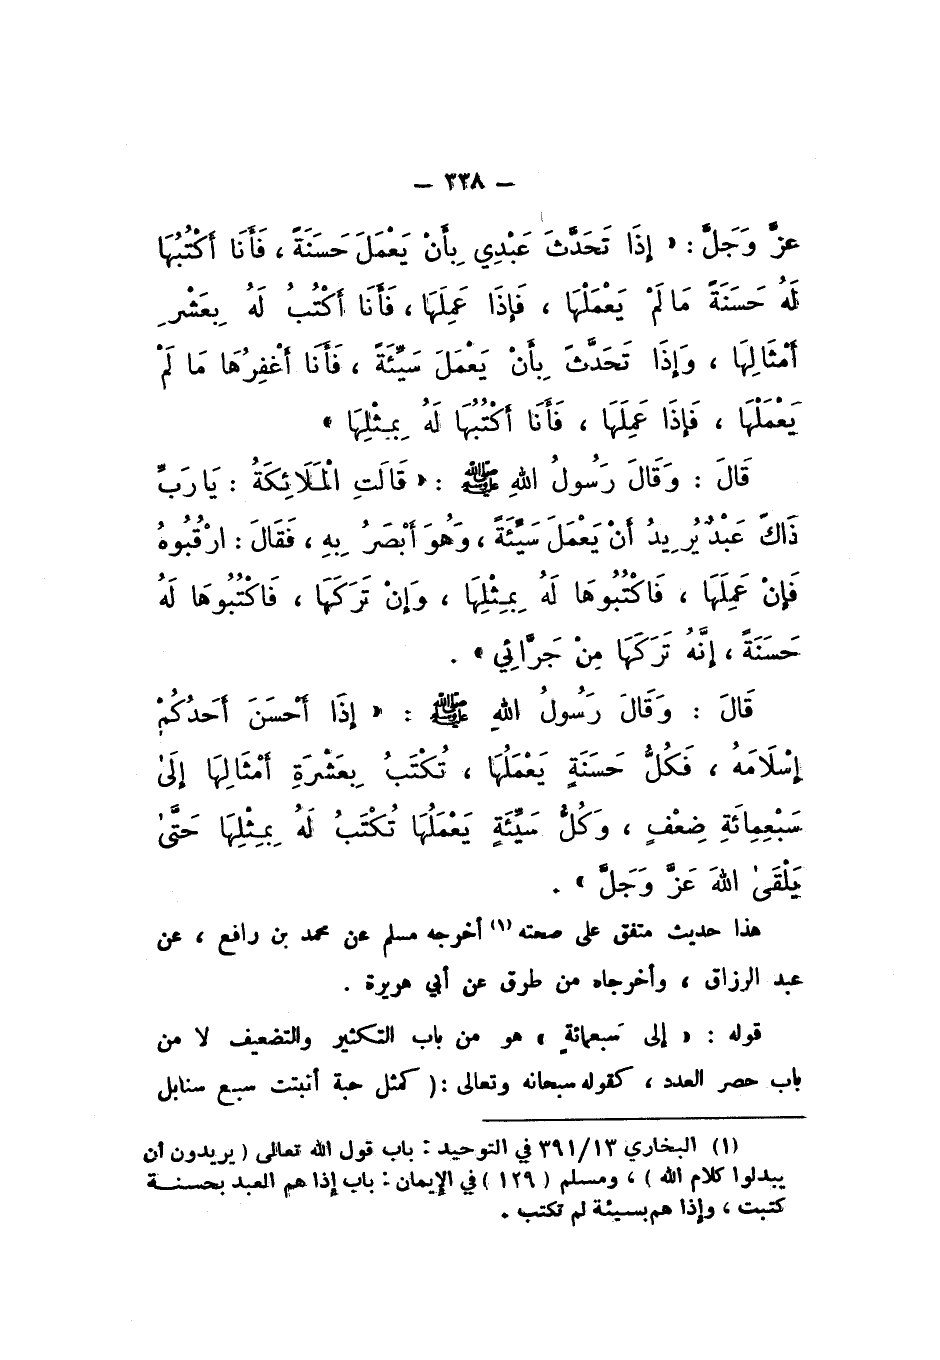 — ٣٣٨ —
عزَّ وَجَلَّ : « إِذَا تَحَدَّثَ عَبْدِي بِأَنْ يَعْمَلَ حَسَنَةً ، فَأَنَا أَكْتُبُهَا
لَهُ حَسَنَةً مَا لَمْ يَعْمَلْهَا ، فَإِذَا عَمِلَهَا ، فَأَنَا أَكْتُبُ لَهُ بِعَشْرِ
أَمْثَالِهَا ، وَإِذَا تَحَدَّثَ بِأَنْ يَعْمَلَ سَيِّئَةً ، فَأَنَا أَغْفِرُهَا مَا لَمْ
يَعْمَلْهَا ، فَإِذَا عَمِلَهَا ، فَأَنَا أَكْتُبُهَا لَهُ بِمِثْلِهَا »
قَالَ : وَقَالَ رَسُولُ اللهِ ﷺ : « قَالَتِ الْمَلَائِكَةُ : يَا رَبِّ
ذَاكَ عَبْدٌ يُرِيدُ أَنْ يَعْمَلَ سَيِّئَةً ، وَهُوَ أَبْصَرُ بِهِ ، فَقَالَ : ارْقُبُوهُ
فَإِنْ عَمِلَهَا ، فَاكْتُبُوهَا لَهُ بِمِثْلِهَا ، وَإِنْ تَرَكَهَا ، فَاكْتُبُوهَا لَهُ
حَسَنَةً ، إِنَّهُ تَرَكَهَا مِنْ جَرَّائِي » .
قَالَ : وَقَالَ رَسُولُ اللهِ ﷺ : « إِذَا أَحْسَنَ أَحَدُكُمْ
إِسْلَامَهُ ، فَكُلُّ حَسَنَةٍ يَعْمَلُهَا ، تُكْتَبُ بِعَشْرَةِ أَمْثَالِهَا إِلَىٰ
سَبْعِمِائَةِ ضِعْفٍ ، وَكُلُّ سَيِّئَةٍ يَعْمَلُهَا تُكْتَبُ لَهُ بِمِثْلِهَا حَتَّىٰ
يَلْقَىٰ اللهَ عَزَّ وَجَلَّ » .
هذا حديث متفق على صحته (١) أخرجه مسلم عن محمد بن رافع ، عن
عبد الرزاق ، وأخرجاه من طرق عن أبي هريرة .
قوله : « إلى سَبعمائةٍ » هو من باب التكثير والتضعيف لا من
باب حصر العدد ، كقوله سبحانه وتعالى : ( كمثل حبة أنبتت سبع سنابل
(١) البخاري ٣٩١/١٣ في التوحيد : باب قول الله تعالى ( يريدون أن
يبدلوا كلام الله ) ، ومسلم ( ١٢٩ ) في الإيمان : باب إذا هم العبد بحسنـة
كتبت ، وإذا هم بسيئة لم تكتب .